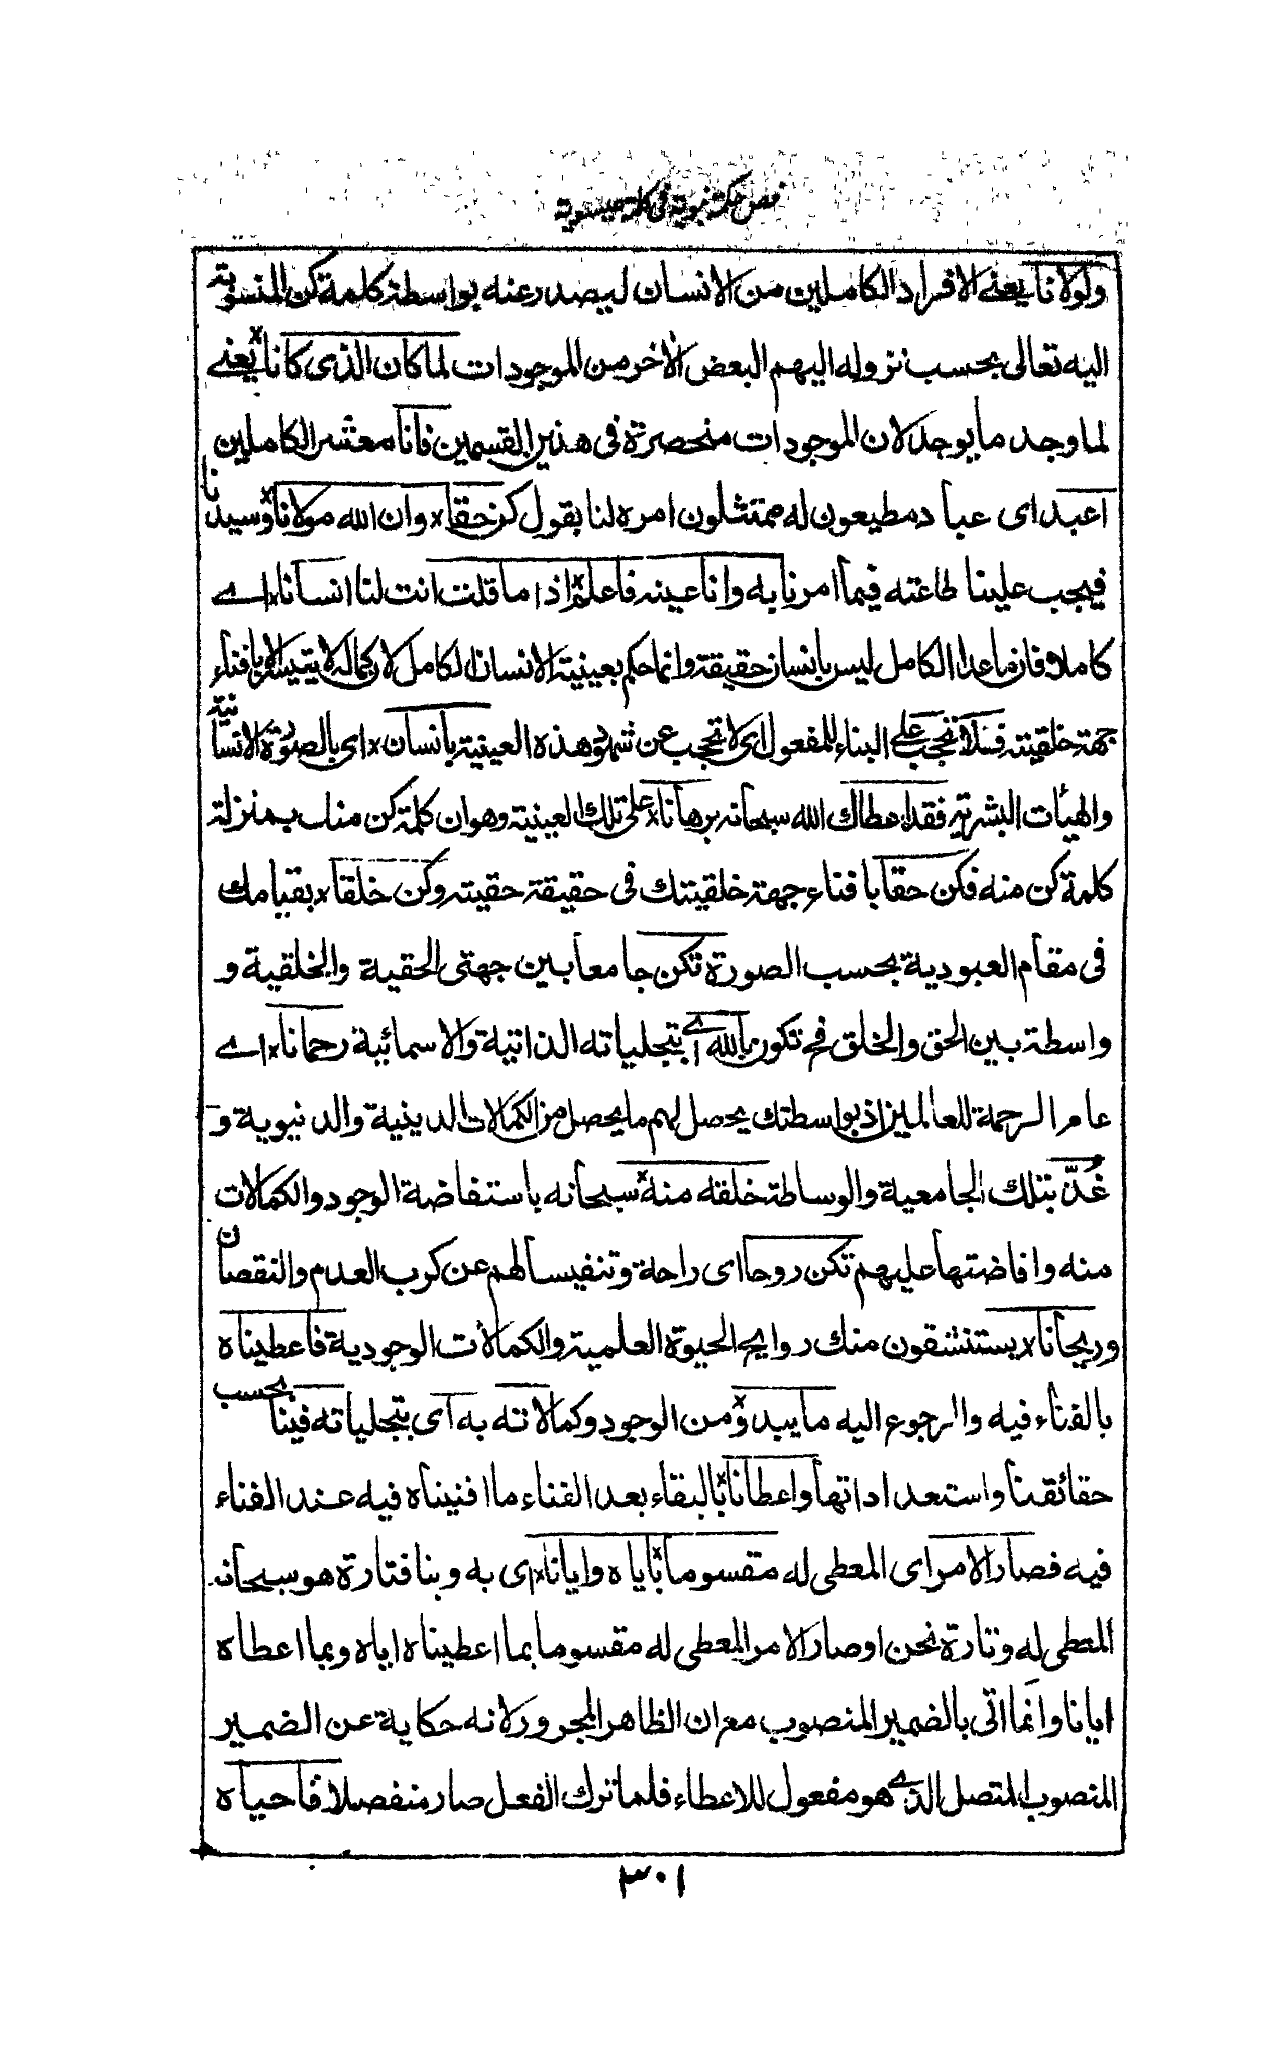 فص حكمة نبوية فى كلمة عيسوية
ولولانا يعنے الافراد الكاملين من الانسان ليصدر عنه بواسطة كلمة كن المنسوبة
اليه تعالى بحسب نزوله اليهم البعض الاخر من الموجودات لما كان الذى كانا يعنے
لما وجد ما يوجد لان الموجودات منحصرة فى هذين القسمين فانا معشر الكاملين
اعبد اى عباد مطيعون له ممتثلون امره لنا بقول كن حقا وان الله مولانا وسيدنا
فيجب علينا طاعته فيما امرنا به وانا عينه فاعلم اذا ما قلت انت لنا انسانا اے
كاملا فان ما عدا الكامل ليس بانسان حقيقة وانما حكم بعينية الانسان الكامل لان كماله لا يتيسر الا بافناء
جهة خلقيته فلا تحجب على البناء للمفعول اى لا تحجب عن شهود هذه العينية بانسان اى بالصورة الانسانية
والهيأت البشرية فقد اعطاك الله سبحانه برهانا على تلك العينية وهو ان كلمة كن منك بمنزلة
كلمة كن منه فكن حقا بافناء جهة خلقيتك فى حقيقة حقيته وكن خلقا بقيامك
فى مقام العبودية بحسب الصورة تكن جامعا بين جهتى الحقية والخلقية و
واسطة بين الحق والخلق فح تكون بالله اے بتجلياته الذاتية والاسمائية رحمانا اے
عام الرحمة للعالمين اذ بواسطتك يحصل لهم ما يحصل من الكمالات الدينية والدنيوية و
غُدّ بتلك الجامعية والوساطة خلقه منه سبحانه باستفاضة الوجود والكمالات
منه وافاضتها عليهم تكن روحا اى راحة وتنفيسا لهم عن كرب العدم والنقصان
وريحانا يستنشقون منك روايح الحيوة العلمية والكمالات الوجودية فاعطيناه
بالفناء فيه والرجوع اليه ما يبدو من الوجود وكمالاته به اى بتجلياته فينا بحسب
حقائقنا واستعداداتها واعطانا بالبقاء بعد الفناء ما افنيناه فيه عند الفناء
فيه فصار الامر اى المعطى له مقسوما باياه وايانا اى به وبنا فتارة هو سبحانه
المعطى له وتارة نحن او صار الامر المعطى له مقسوما بما اعطيناه اياه وبما اعطاه
ايانا وانما اتى بالضمير المنصوب مع ان الظاهر المجرور لانه حكاية عن الضمير
المنصوب المتصل الذے هو مفعول للاعطاء فلما ترك الفعل صار منفصلا فاحياه
٣٠١